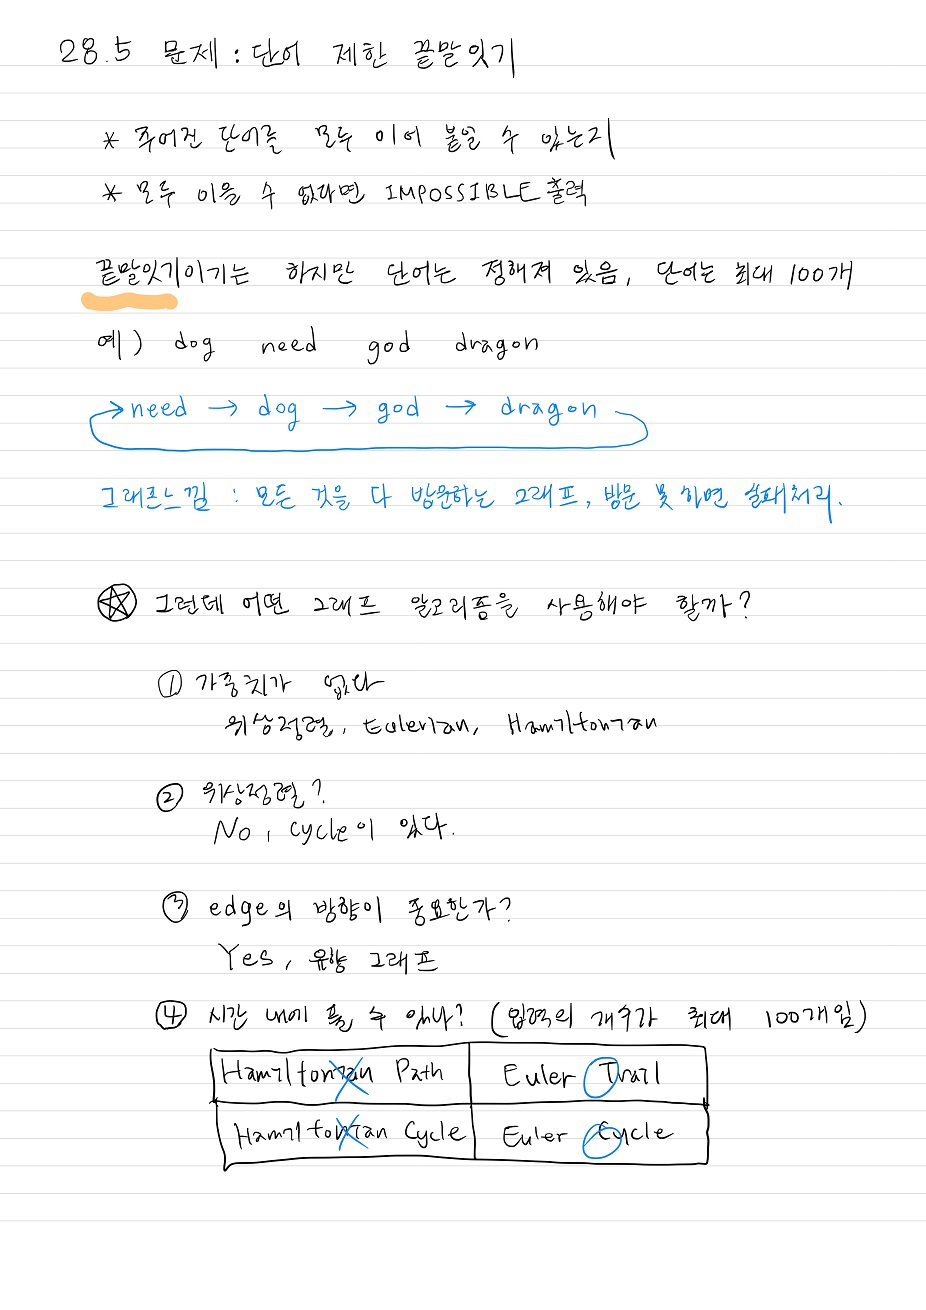 28.5 문제 : 단어 제한 끝말잇기
* 주어진 단어를 모두 이어 붙일 수 있는지
* 모두 이을 수 없다면 IMPOSSIBLE 출력
끝말잇기이기는 하지만 단어는 정해져 있음, 단어는 최대 100개
예) dog need god dragon
→ need → dog → god → dragon
그래프느낌 : 모든 것을 다 방문하는 그래프, 방문 못하면 실패처리.
그런데 어떤 그래프 알고리즘을 사용해야 할까?
① 가중치가 없다
위상정렬, Eulerian, Hamiltonian
② 위상정렬?
No, cycle이 있다.
③ edge의 방향이 중요한가?
Yes, 유향 그래프
④ 시간 내에 풀 수 있나? (입력의 개수가 최대 100개임)
Hamiltonian Path Euler Trail
Hamiltonian Cycle Euler Cycle